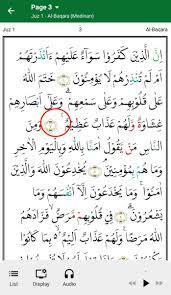 Page 3
Juz 1 - Al-Baqara (Medinan)
Juz 1 3 Al-Baqara
إِنَّ الَّذِينَ كَفَرُوا سَوَاءٌ عَلَيْهِمْ ءَأَنذَرْتَهُمْ
أَمْ لَمْ تُنذِرْهُمْ لَا يُؤْمِنُونَ خَتَمَ اللَّهُ
عَلَىٰ قُلُوبِهِمْ وَعَلَىٰ سَمْعِهِمْ وَعَلَىٰ أَبْصَارِهِمْ
غِشَاوَةٌ وَلَهُمْ عَذَابٌ عَظِيمٌ وَمِنَ
النَّاسِ مَن يَقُولُ ءَامَنَّا بِاللَّهِ وَبِالْيَوْمِ الْآخِرِ
وَمَا هُم بِمُؤْمِنِينَ يُخَادِعُونَ اللَّهَ وَالَّذِينَ
ءَامَنُوا وَمَا يَخْدَعُونَ إِلَّا أَنفُسَهُمْ وَمَا
يَشْعُرُونَ فِي قُلُوبِهِم مَّرَضٌ فَزَادَهُمُ
اللَّهُ مَرَضًا وَلَهُمْ عَذَابٌ أَلِيمٌ بِمَا كَانُوا
List Display Audio